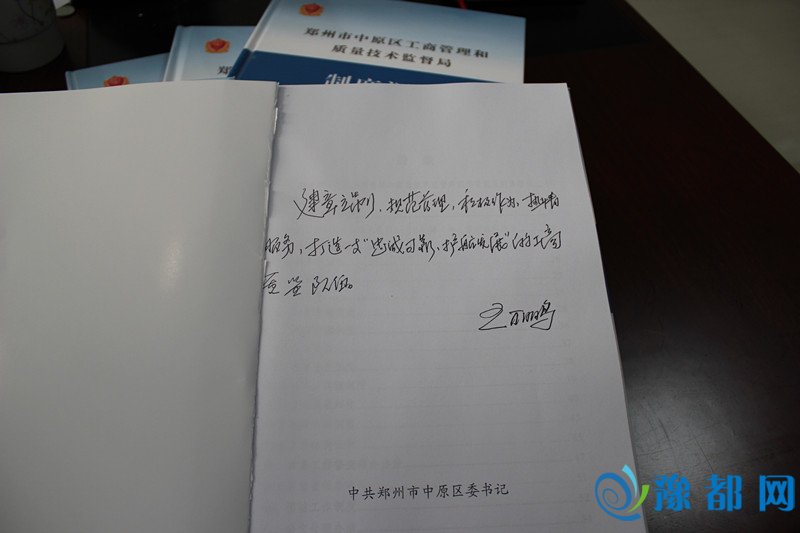 郑州市中原区工商管理和
质量技术监督局
郑
建章立制、规范管理，积极作为，热情
服务，打造一支“忠诚可靠、护航发展”的工商
质监队伍。
中共郑州市中原区委书记
豫都网